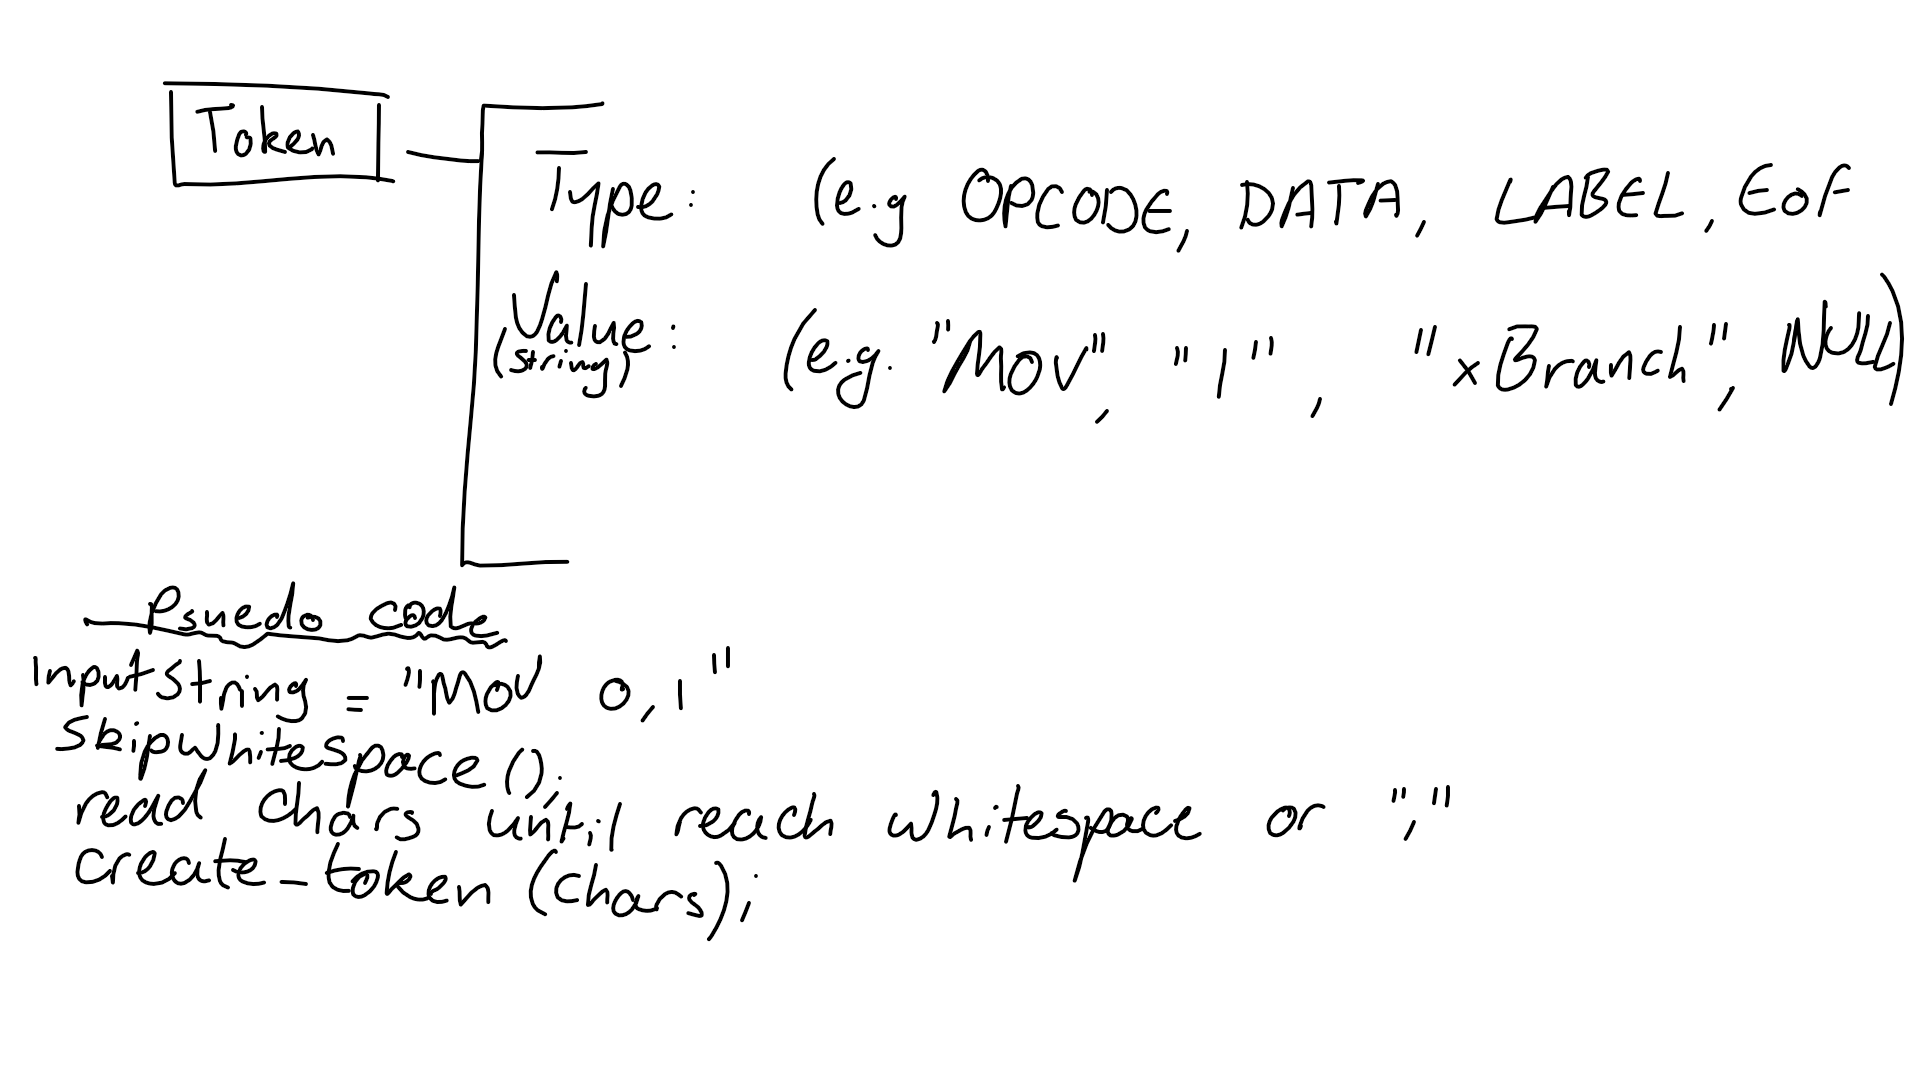 Token
Type: (e.g OPCODE, DATA, LABEL, EOF
Value: (e.g. "MOV", "1", "xBranch", NULL)
(string)
Psuedo code
inputString = "MOV 0,1"
skipwhitespace();
read chars until reach whitespace or ","
create_token(chars);